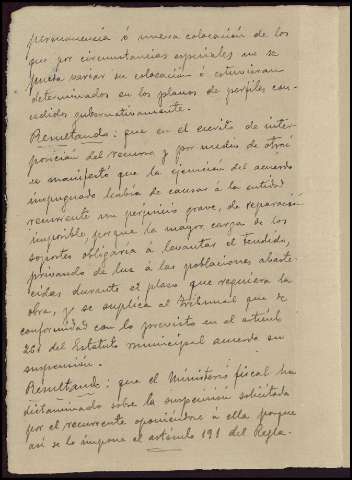 permanencia ó nueva colocación de los
que por circunstancias especiales no se
pueda variar su colocación ó estuvieran
determinados en los planos de perfiles con-
cedidos gubernativamente.
Resultando: que en el escrito de inter-
posición del recurso y por medio de otrosí
se manifestó que la ejecución del acuerdo
impugnado había de causar á la entidad
recurrente un perjuicio grave, de reparación
imposible porque la mayor carga de los
soportes obligaría á levantar el tendido,
privando de luz á las poblaciones abaste-
cidas durante el plazo que requiera la
obra, y se suplica al Tribunal que de
conformidad con lo previsto en el artículo
261 del Estatuto municipal acuerde su
suspensión.
Resultando: que el Ministerio fiscal ha
dictaminado sobre la suspensión solicitada
por el recurrente oponiéndose á ella porque
así se lo impone el artículo 191 del Regla-